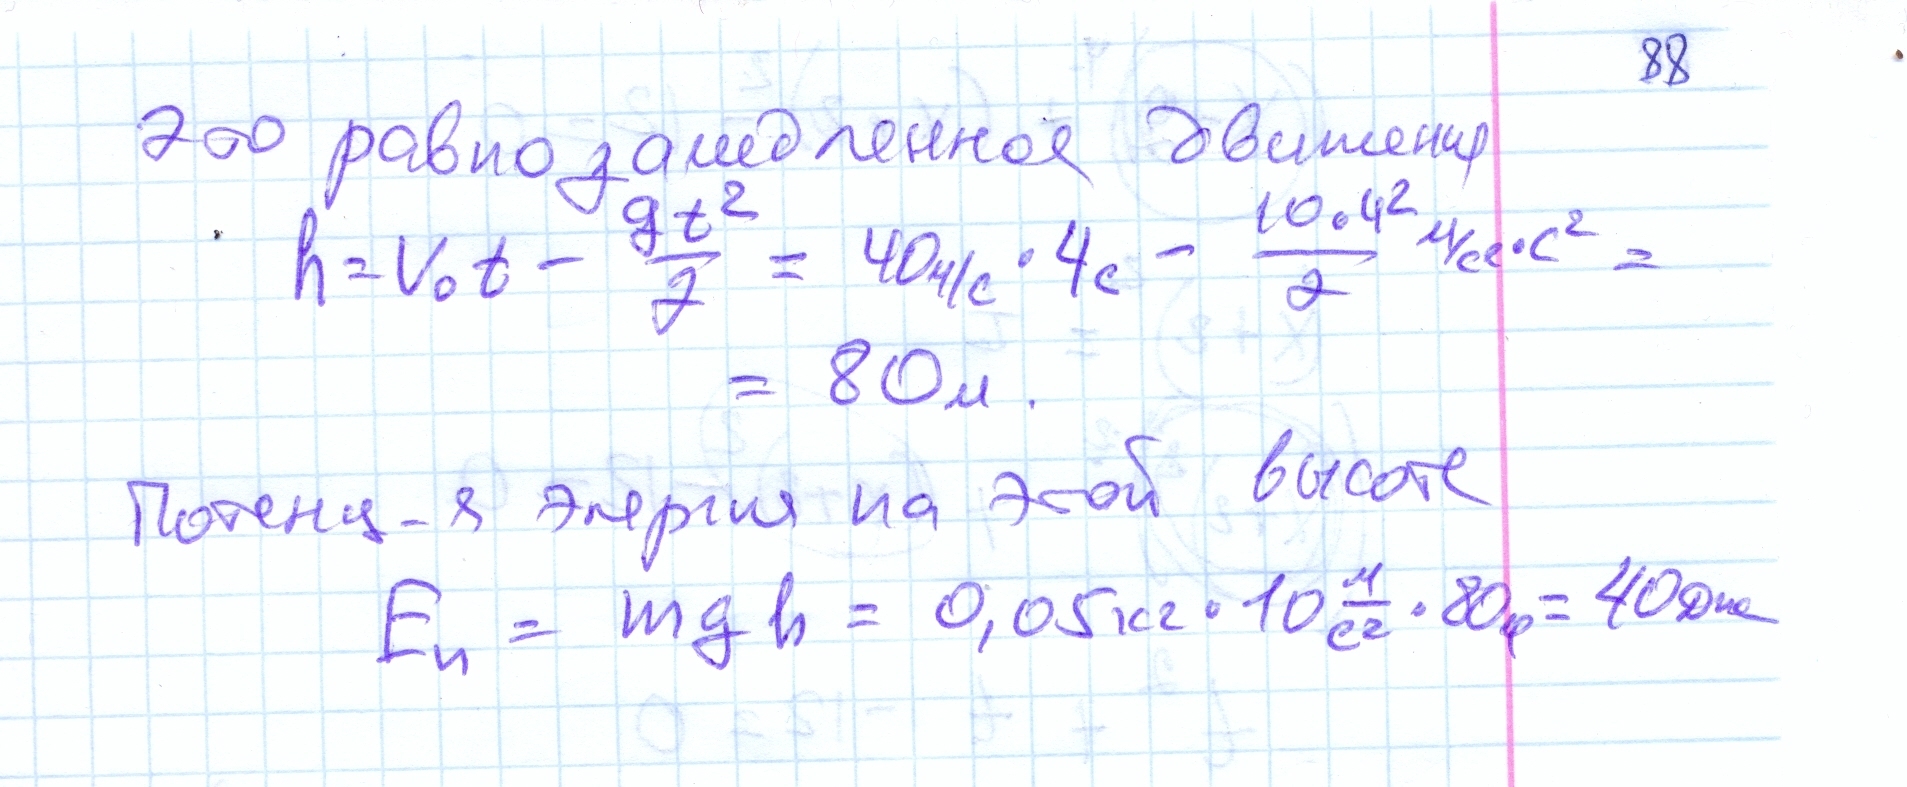 88
Это равнозамедленное движение
h = V₀t - gt²/2 = 40 м/с · 4с - 10·4²/2 м/с² · с² =
= 80 м.
Потенц-я энергия на этой высоте
Eп = mgh = 0,05 кг · 10 м/с² · 80 м = 40 Дж